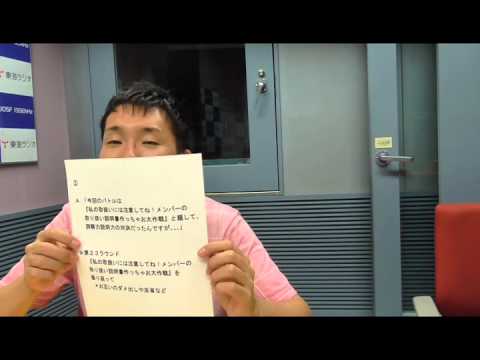 東海ラジオ
JOSF 1332kHz
東海ラジオ
②
A 「今回のバトルは
『私の取扱いには注意してね！メンバーの
取り扱い説明書作っちゃお大作戦』と題して、
説明の説得力の対決だったんですが、、、」
◆第２ラウンド
『私の取扱いには注意してね！メンバーの
取り扱い説明書作っちゃお大作戦』を
振り返って
＊お互いのダメ出しや反省など